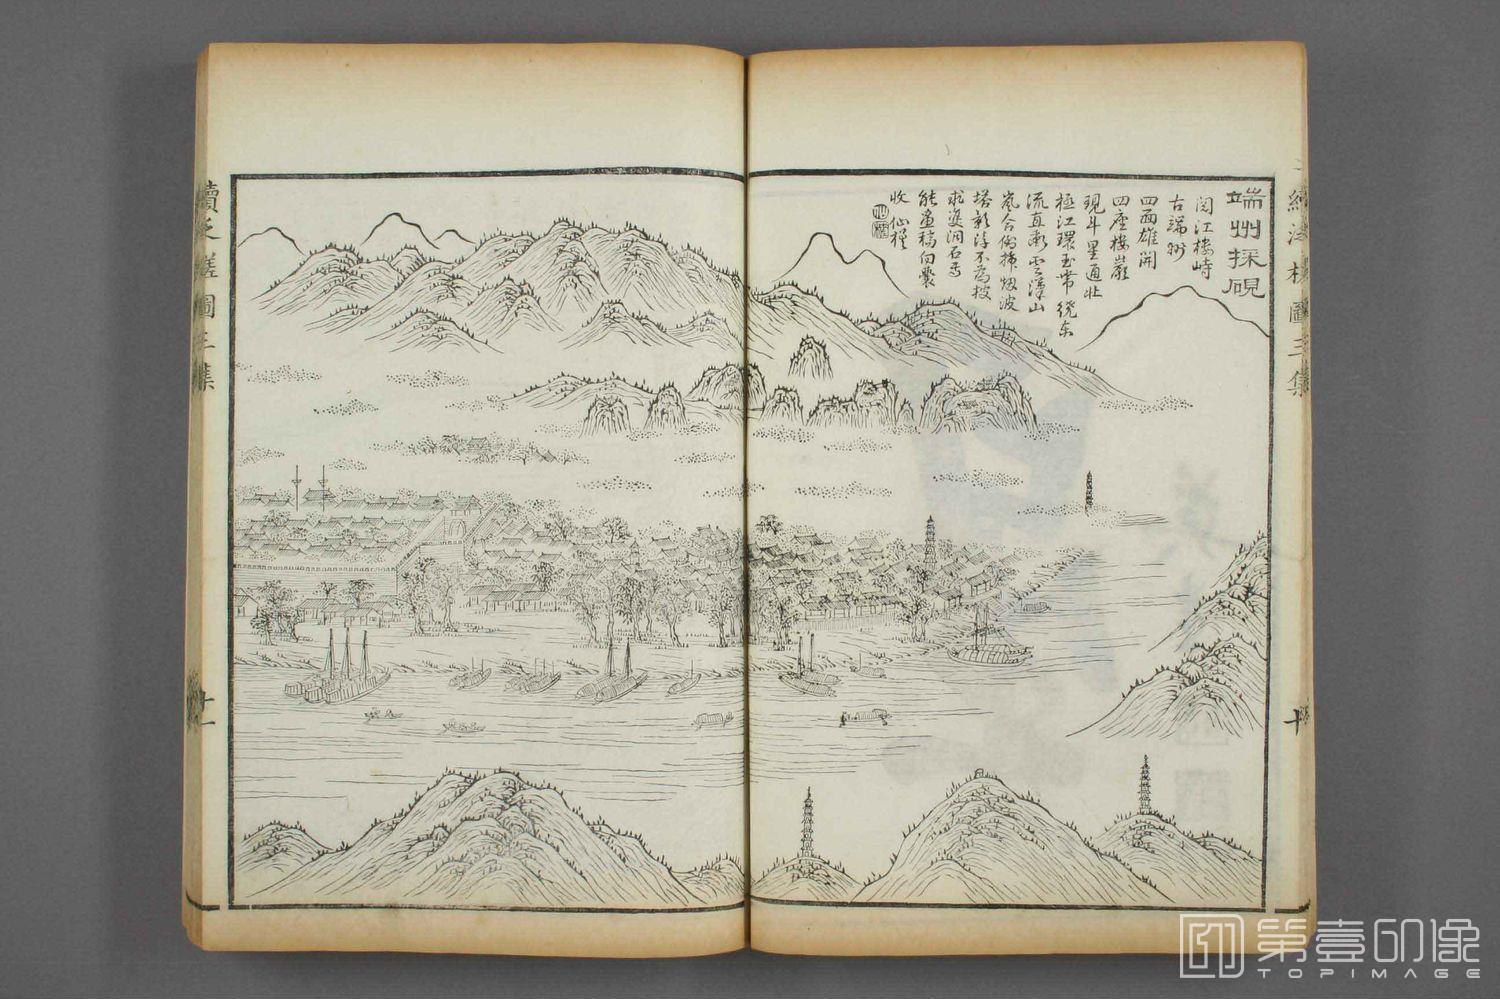 續泛槎圖三集
十
端州採硯
閱江樓峙
古端州
四面雄開
四座樓巖
現斗星通北
極江環玉帶繞東
流直雲漳山
嵐合倒烟波
塔影浮不為
求洞石
能畫稿向囊
收 仙槎
續泛槎圖三集
十一
第壹印像
TOPIMAGE